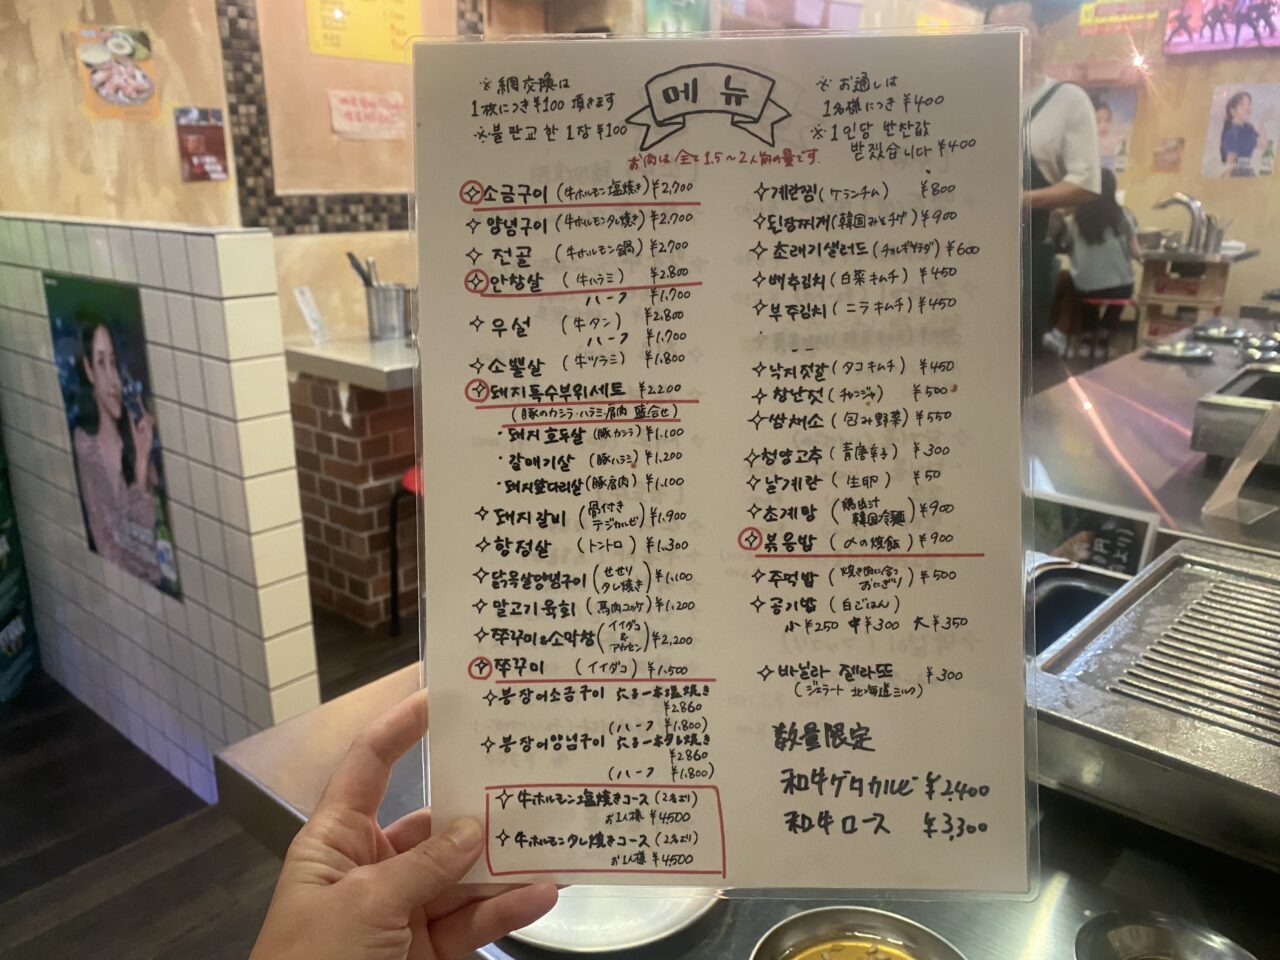 메뉴
※網交換は
1枚につき¥100 頂きます
※불판교환 1장 ¥100
※お通しは
1名様につき ¥400
※1인당 반찬값
받겠습니다 ¥400
お肉は全て1.5〜2人前の量です.
소금구이 (牛ホルモン塩焼き) ¥2,700
양념구이 (牛ホルモンタレ焼き) ¥2,700
전골 (牛ホルモン鍋) ¥2,700
안창살 (牛ハラミ) ¥2,800
ハーフ ¥1,700
우설 (牛タン) ¥2,800
ハーフ ¥1,700
소뽈살 (牛ツラミ) ¥1,800
돼지특수부위세트 ¥2,200
(豚のカシラ・ハラミ・肩肉 盛合せ)
・돼지호두살 (豚カシラ) ¥1,100
・갈매기살 (豚ハラミ) ¥1,200
・돼지앞다리살 (豚肩肉) ¥1,100
돼지갈비 (骨付きテジカルビ) ¥1,900
항정살 (トントロ) ¥1,300
닭목살양념구이 (せせりタレ焼き) ¥1,100
말고기육회 (馬肉ユッケ) ¥1,200
쭈꾸미&소막창 (イイダコ&アカセン) ¥2,200
쭈꾸미 (イイダコ) ¥1,500
붕장어소금구이 穴子一本塩焼き
¥2860
(ハーフ ¥1,800)
붕장어양념구이 穴子一本タレ焼き
¥2860
(ハーフ ¥1,800)
牛ホルモン塩焼きコース (2名より)
お1人様 ¥4,500
牛ホルモンタレ焼きコース (2名より)
お1人様 ¥4,500
계란찜 (ケランチム) ¥800
된장찌개 (韓国みそチゲ) ¥900
초래기샐러드 (チョレギサラダ) ¥600
배추김치 (白菜キムチ) ¥450
부추김치 (ニラキムチ) ¥450
낙지젓갈 (タコキムチ) ¥450
창난젓 (チャンジャ) ¥500
쌈채소 (包み野菜) ¥550
청양고추 (青唐辛子) ¥300
날계란 (生卵) ¥50
초계망 (鶏肉汁韓国冷麺) ¥900
볶음밥 (〆の焼飯) ¥900
주먹밥 (焼き肉に合うおにぎり) ¥500
공기밥 (白ごはん)
小¥250 中¥300 大¥350
바닐라 젤라또 ¥300
(ジェラート 北海道ミルク)
数量限定
和牛ゲタカルビ ¥2,400
和牛ロース ¥3,300